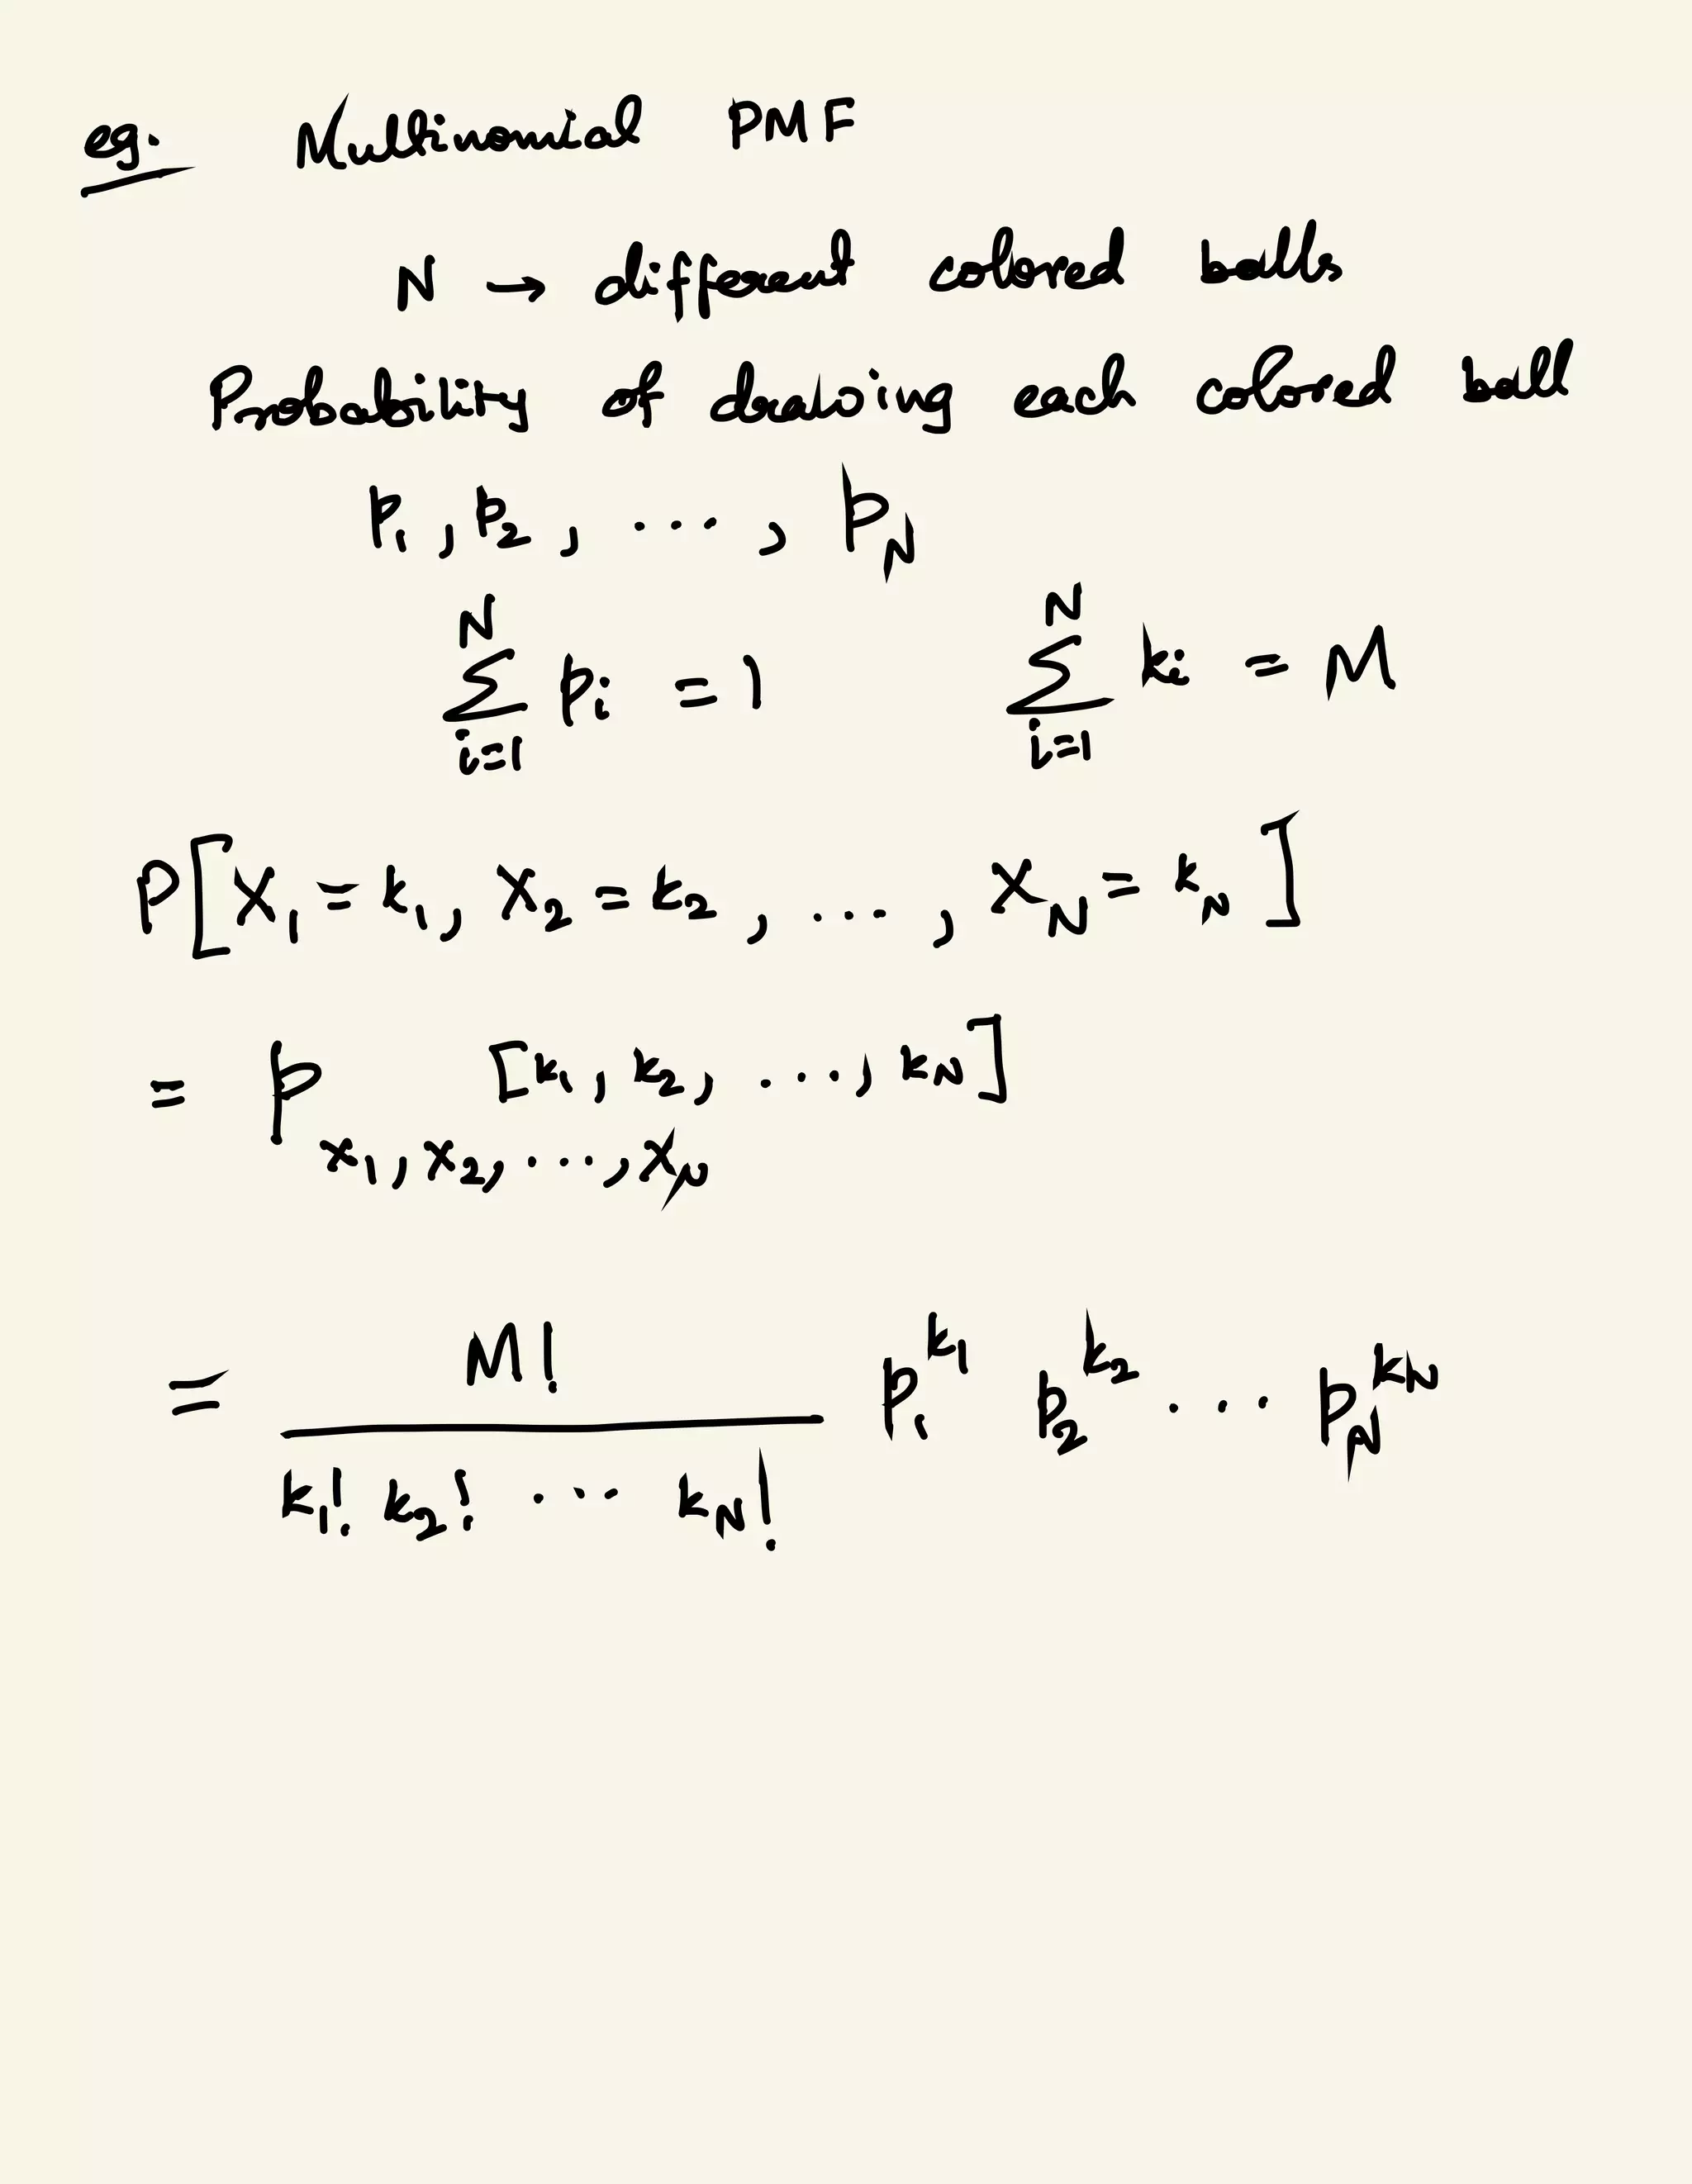 eg. Multinomial PMF
N → different colored balls
Probability of drawing each colored ball
p₁, p₂, ..., p_N
∑_{i=1}^{N} p_i = 1    ∑_{i=1}^{N} k_i = M
P[X₁ = k₁, X₂ = k₂, ..., X_N = k_N]
= P_{X₁, X₂, ..., X_N} [k₁, k₂, ..., k_N]
= \frac{M!}{k₁! k₂! ... k_N!} p₁^{k₁} p₂^{k₂} ... p_N^{k_N}